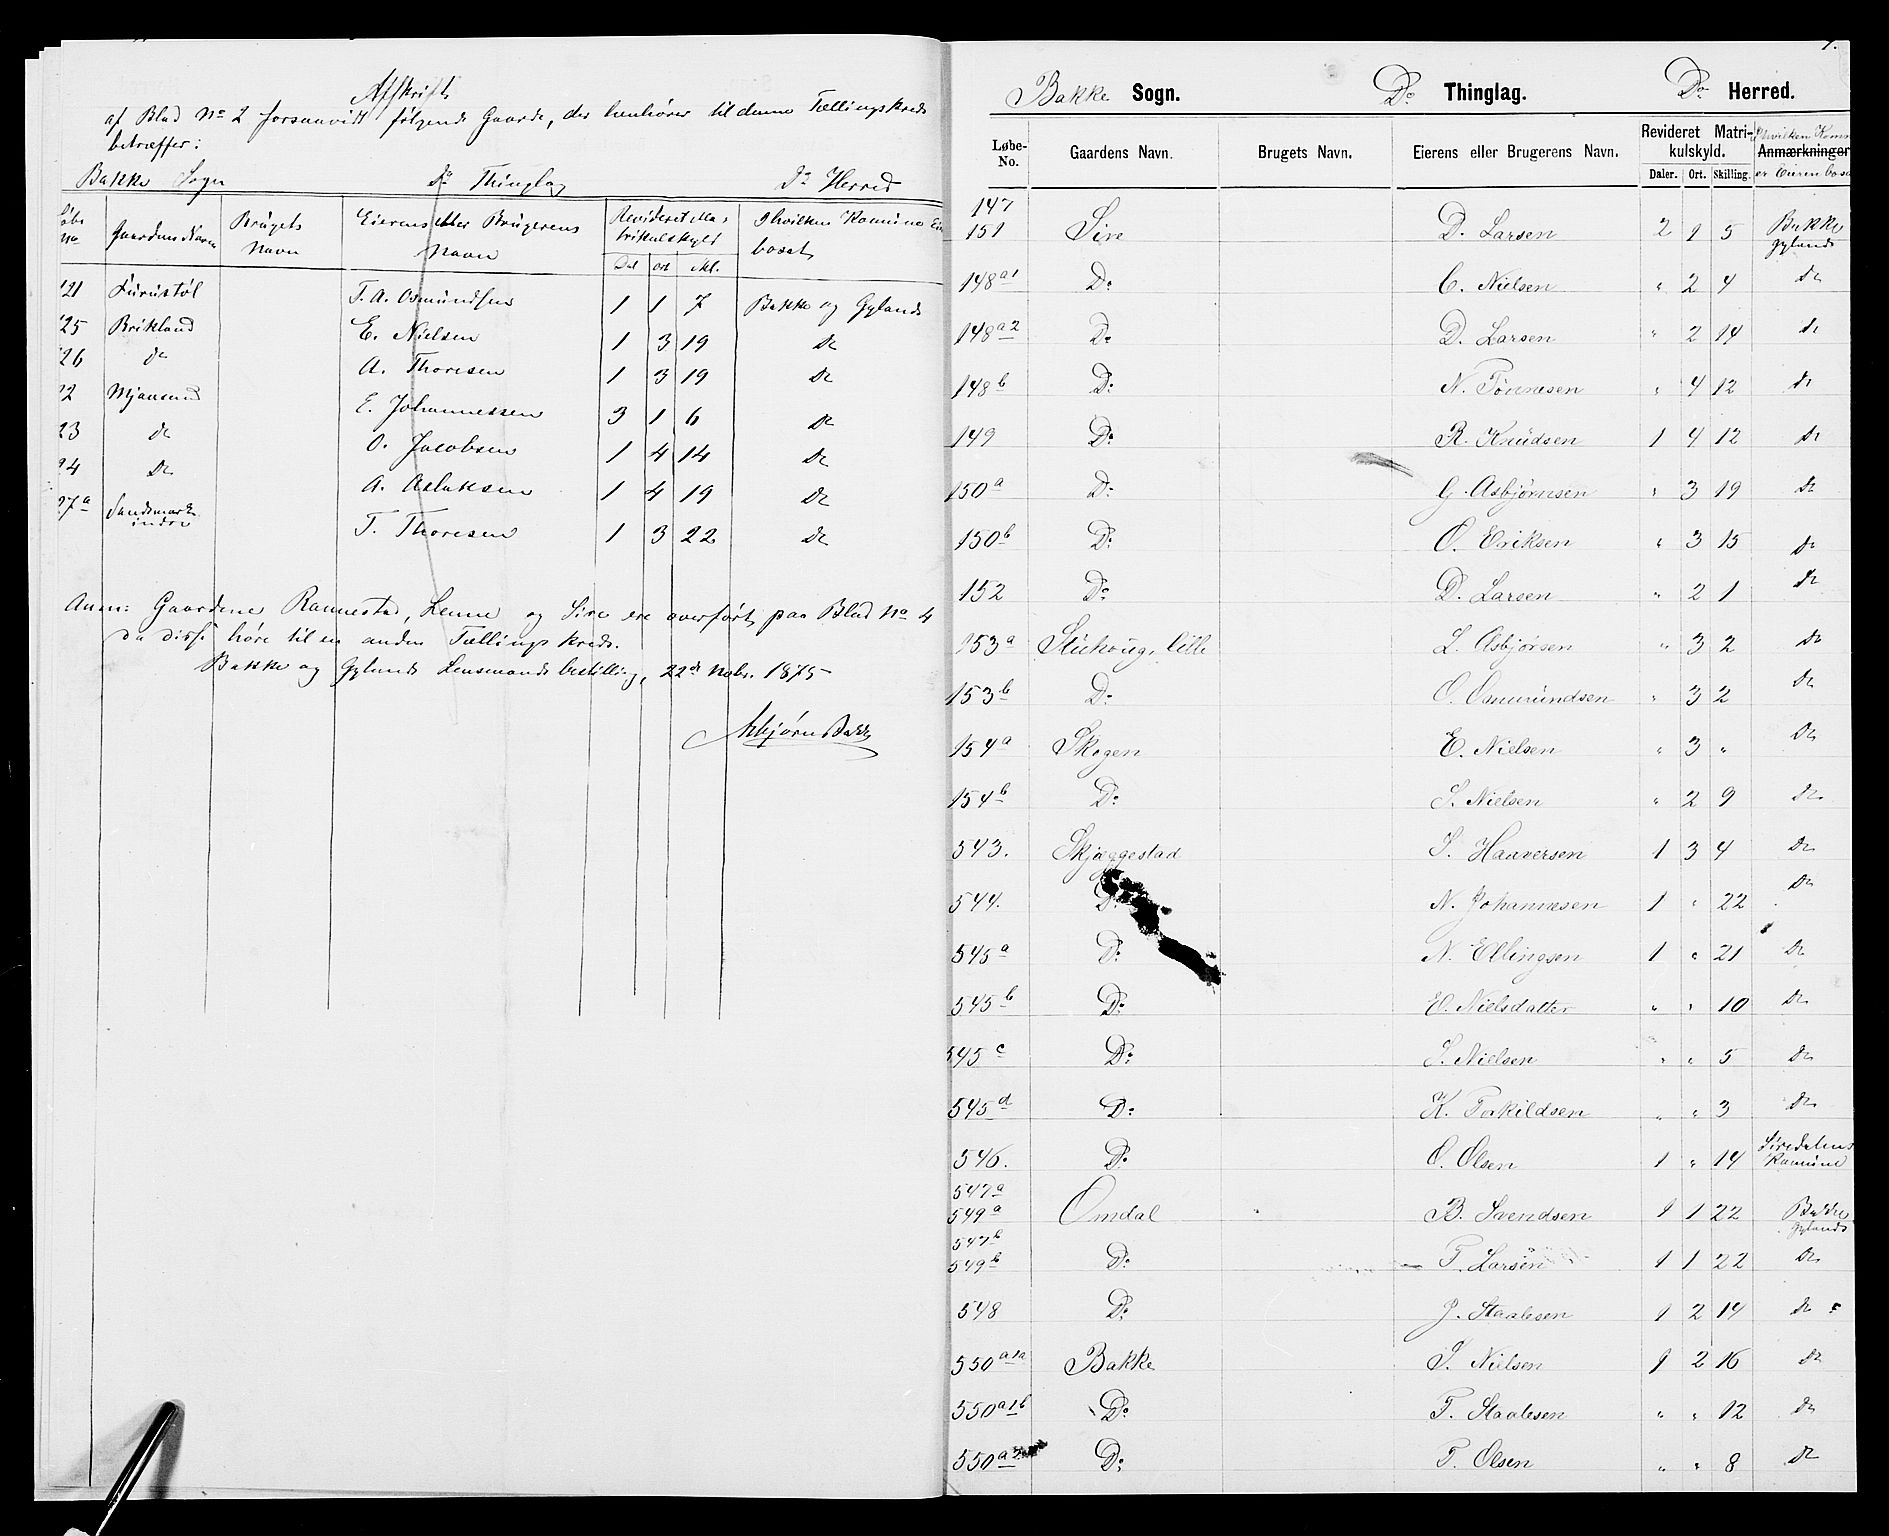 Afskrift
af Blad No 2 forsaavidt følgende Gaarde, der henhører til denne Tællingskreds
betræffer:
Bakke Sogn Do Thinglag Do Herred
Løbe No Gaardens Navn Brugets Navn Eierens eller Brugerens Navn Revideret Matrikulskyld I hvilken Komune Eier bosat
Dal ort Skl.
121 Lurustøl T. A. Osmundsen 1 1 7 Bakke og Gylands
125 Brikland E. Nielsen 1 3 19 do
126 do A. Thoresen 1 3 19 do
22 Mjaasund E. Johannessen 3 1 6 do
23 do O. Jacobsen 1 4 14 do
24 do A. Aslaksen 1 4 19 do
27a Sandsmark indre T. Thoresen 1 3 22 do
Anm: Gaardene Rannestad, Lenne og Sire ere overført paa Blad No 4
da disse høre til en anden Tællingskreds.
Bakke og Gylands Lensmandsbestilling, 22de Nobr. 1875
Asbjørn Bakke
Bakke Sogn. Do Thinglag. Do Herred.
Løbe-No. Gaardens Navn. Brugets Navn. Eierens eller Brugerens Navn. Revideret Matrikulskyld. Anmærkninger
I hvilken Komn er Eieren bosat
Daler. Ort. Skilling.
147
151 Sire D. Larsen 2 1 5 Bakke Gylands
148a1 Do C. Nielsen " 2 4 do
148a2 Do D. Larsen " 2 14 do
148b Do N. Tønnesen " 4 12 do
149 Do R. Knudsen 1 4 12 do
150a Do G. Asbjørnsen " 3 19 do
150b Do O. Eriksen " 3 15 do
152 Do D. Larsen " 2 1 do
153a Stuhoug, lille L. Asbjørsen " 3 2 do
153b Do O. Osmundsen " 3 2 do
154a Skogen E. Nielsen " 3 " do
154b Do S. Nielsen " 2 9 do
543. Skjæggestad S. Haaversen 1 3 4 do
544. Do N. Johannesen 1 " 22 do
545a Do N. Ellingsen 1 " 21 do
545b Do E. Nielsdatter " " 10 do
545c Do S. Nielsen " " 5 do
545d Do K. Torkildsen " " 3 do
546. Do O. Olsen 1 " 14 Siredalens Komune
547a
549a Omdal B. Svendsen 1 1 22 Bakke Gylands
547b
549b Do T. Larsen 1 1 22 do
548 Do J. Staalesen 1 2 14 do
550a1a Bakke S. Nielsen 1 2 16 do
550a1b Do T. Staalesen " " 12 do
550a2 Do T. Olsen " " 8 do